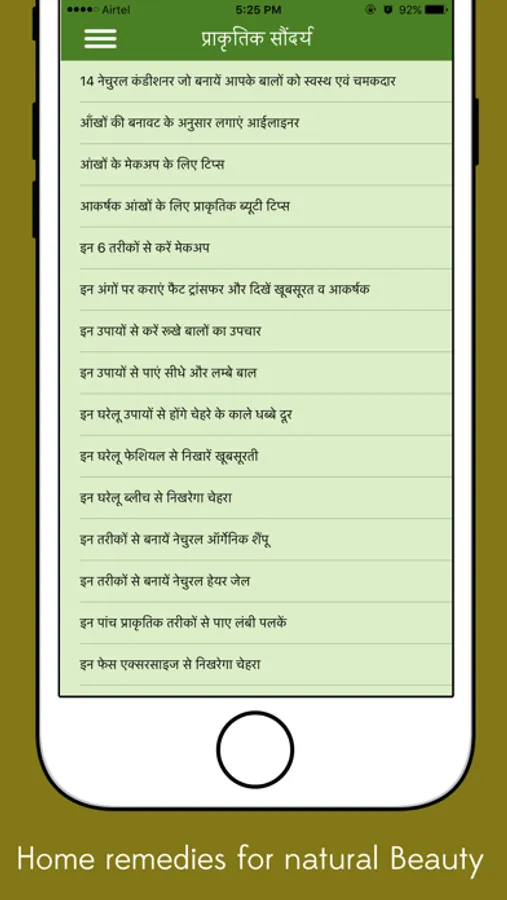 Airtel 5:25 PM 92%
प्राकृतिक सौंदर्य
14 नेचुरल कंडीशनर जो बनायें आपके बालों को स्वस्थ एवं चमकदार
आँखों की बनावट के अनुसार लगाएं आईलाइनर
आंखों के मेकअप के लिए टिप्स
आकर्षक आंखों के लिए प्राकृतिक ब्यूटी टिप्स
इन 6 तरीकों से करें मेकअप
इन अंगों पर कराएं फैट ट्रांसफर और दिखें खूबसूरत व आकर्षक
इन उपायों से करें रूखे बालों का उपचार
इन उपायों से पाएं सीधे और लम्बे बाल
इन घरेलू उपायों से होंगे चेहरे के काले धब्बे दूर
इन घरेलू फेशियल से निखारें खूबसूरती
इन घरेलू ब्लीच से निखरेगा चेहरा
इन तरीकों से बनायें नेचुरल ऑर्गेनिक शैंपू
इन तरीकों से बनायें नेचुरल हेयर जेल
इन पांच प्राकृतिक तरीकों से पाए लंबी पलकें
इन फेस एक्सरसाइज से निखरेगा चेहरा
Home remedies for natural Beauty